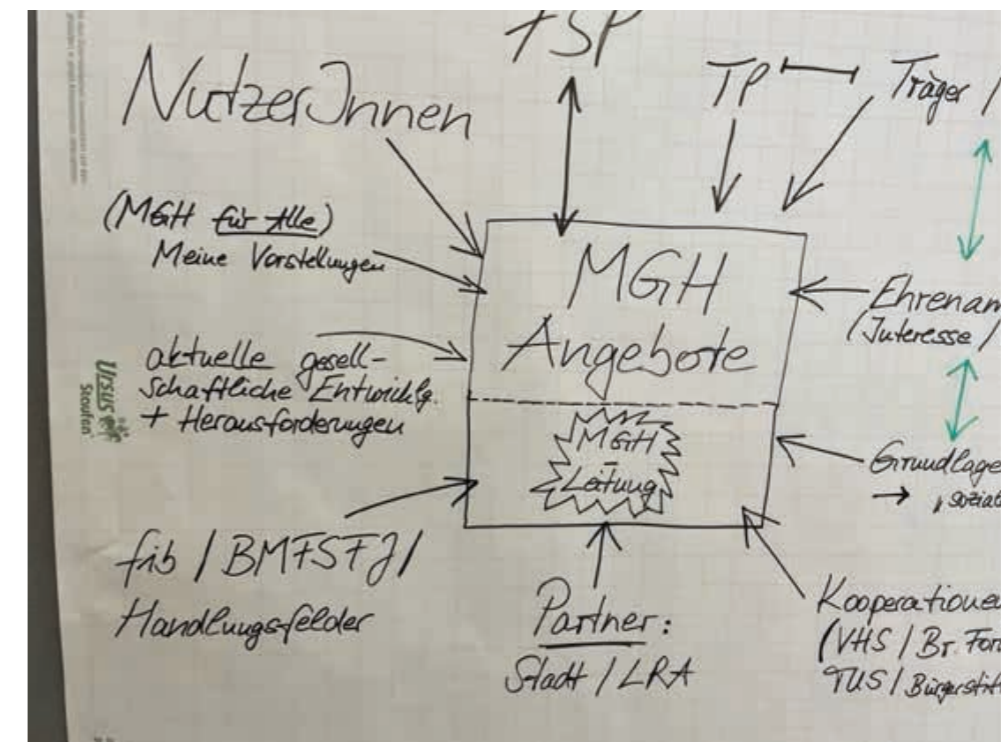 FSP
NutzerInnen
TP
Träger /
(MGH für Alle)
Meine Vorstellungen
MGH
Angebote
Ehrenam
(Interesse /
aktuelle gesell-
schaftliche Entwicklg.
+ Herausforderungen
URSUS
Staufen
MGH
Leitung
Grundlage
→ "sozial
fib / BMFSFJ /
Handlungsfelder
Partner:
Stadt / LRA
Kooperatione
(VHS / Br. For
TUS / Bürgerstift